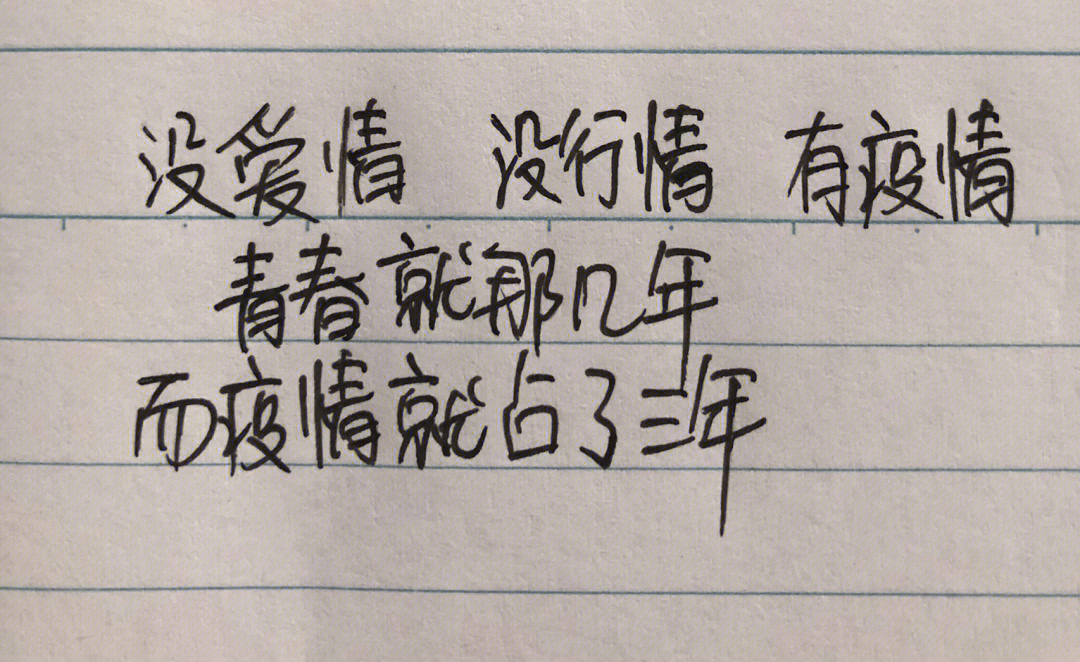 没爱情 没行情 有疫情
青春就那几年
而疫情就占了三年